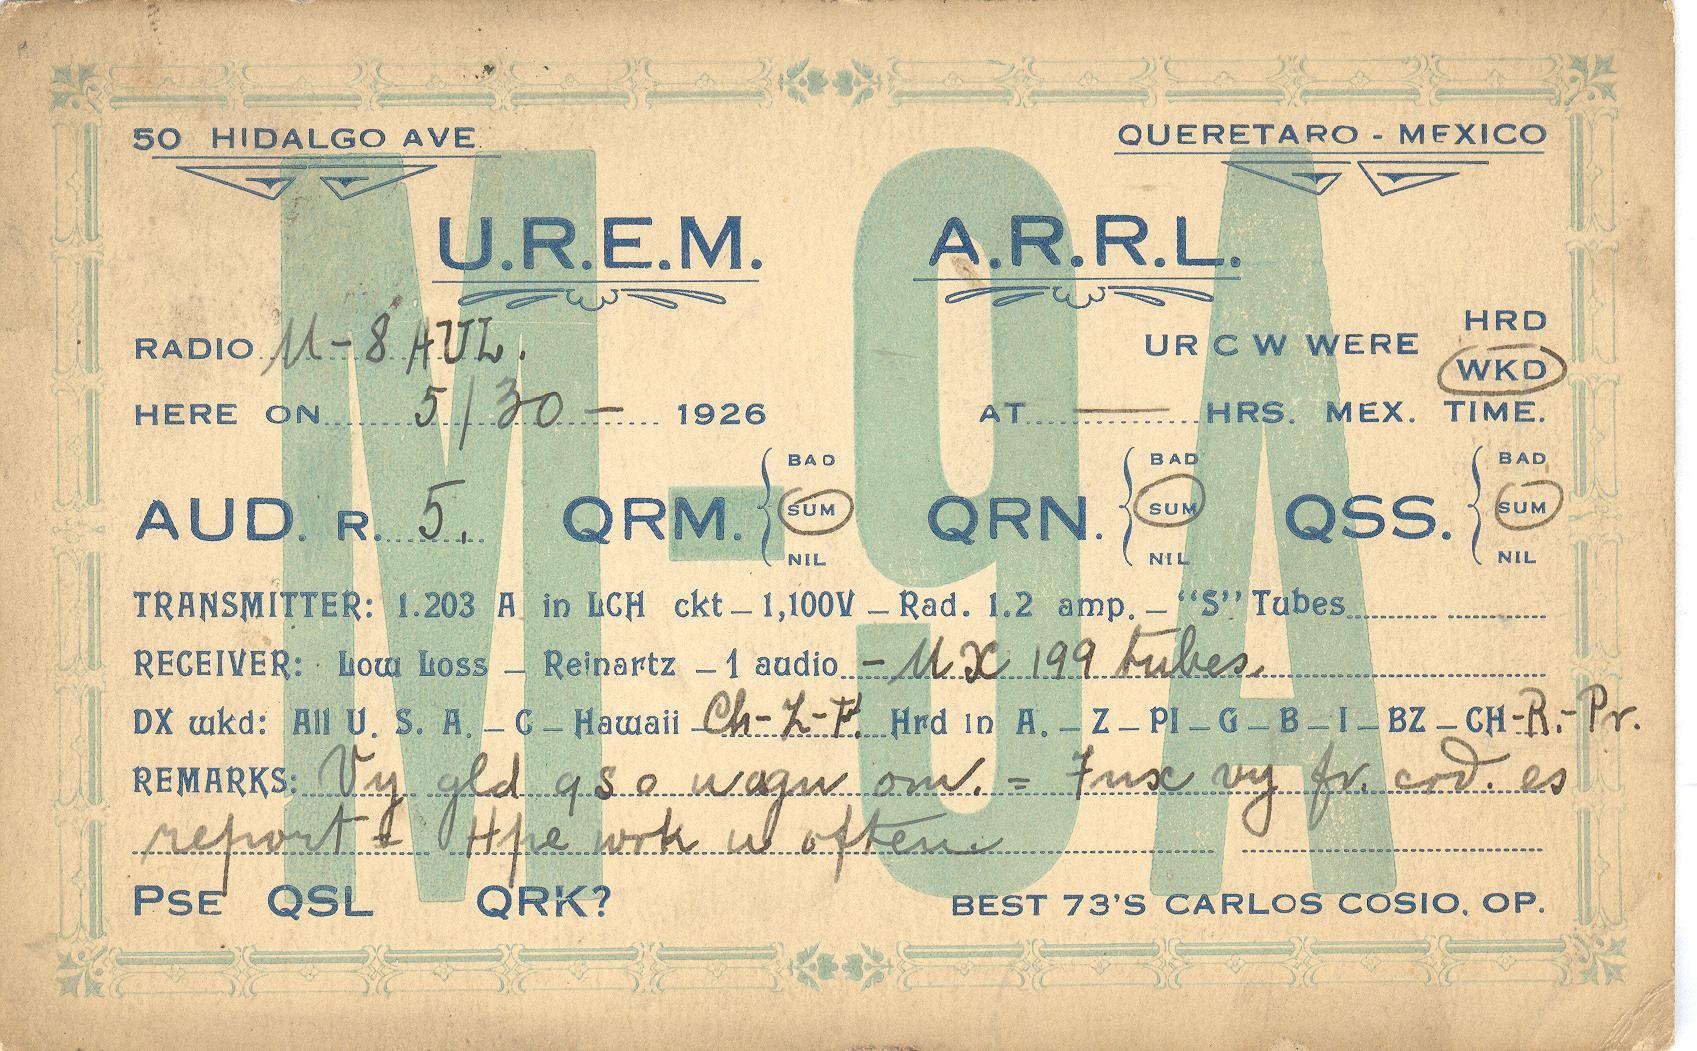 50 HIDALGO AVE. QUERETARO - MEXICO
U.R.E.M. A.R.R.L.
RADIO U-8AUL. UR C W WERE HRD
WKD
HERE ON 5/30- 1926 AT — HRS. MEX. TIME.
AUD. R. 5. QRM. BAD SUM NIL QRN. BAD SUM NIL QSS. BAD SUM NIL
M-9A
TRANSMITTER: 1.203 A in LCH ckt – 1,100V – Rad. 1.2 amp. – "S" Tubes
RECEIVER: Low Loss – Reinartz – 1 audio – UX 199 tubes.
DX wkd: All U. S. A. – C – Hawaii Ch-Z- Hrd in A. – Z – PI – G – B – I – BZ – CH -R.-Pr.
REMARKS: Vy gld qso u agn om. = Tnx vy fr. crd. es
report = Hpe wrk u often.
PSE QSL QRK? BEST 73'S CARLOS COSIO, OP.